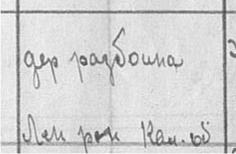 дер разбоина
Лен рон Кал. об